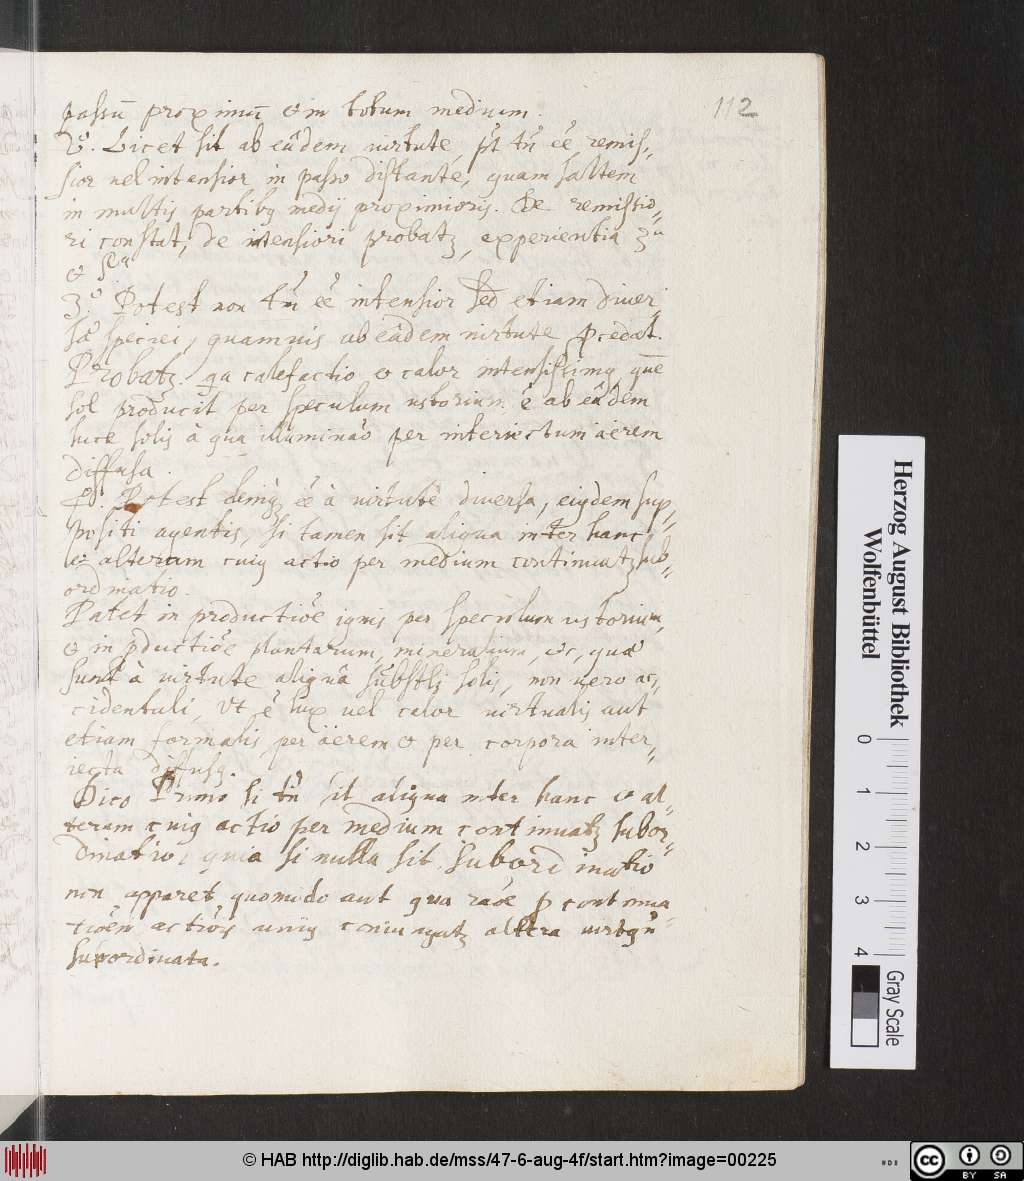 passū proximū & in totum medium.
112
2º. Licet sit ab eâdem virtute, pt̃ tñ eẽ remis,,
sior vel intensior in passo distante, quam saltem
in multis partibꝫ medij proximioris. De remissio,,
ri constat, de intensiori probatꝫ experientia 3ᵃ
&
3.º Potest non tm̃ eẽ intensior sed etiam diver
sæ speciei, quamvis ab eâdem virtute ꝓcedat.
Probatꝫ. qa calefactio & calor intensissimꝰ quẽ
sol producit per speculum ustorium ẽ ab eâdem
luce solis à qua illuminaõ per interiectum aërem
diffusa.
4º. Potest deniqꝫ eẽ à virtute diversa, eiꝰdem sup,,
positi agentis, si tamen sit aliqua inter hanc
& alteram cuiꝰ actio per medium continuatꝫ sub,,
ordinatio.
Patet in productiõe ignis per speculum ustorium,
& in ꝓductiõe plantarum, mineralium, &c, quæ
sunt à virtute aliquâ substlj solis, non vero ac,,
cidentali, Ut ẽ lux vel calor virtualis aut
etiam formalis per aërem & per corpora inter,,
iecta diffusꝰ.
Dico Primo si tñ sit aliqua inter hanc & al,,
teram cuiꝰ actio per medium continuatꝫ subor,,
dinatio, quia si nulla sit subordinatio
non apparet quomodo aut qua raõe ꝓ continua
tiõem actiõis uniꝰ coniungatꝫ altera
subordinata.
Herzog August Bibliothek
Wolfenbüttel
0 1 2 3 4
Gray Scale
© HAB http://diglib.hab.de/mss/47-6-aug-4f/start.htm?image=00225
HAB
cc BY SA